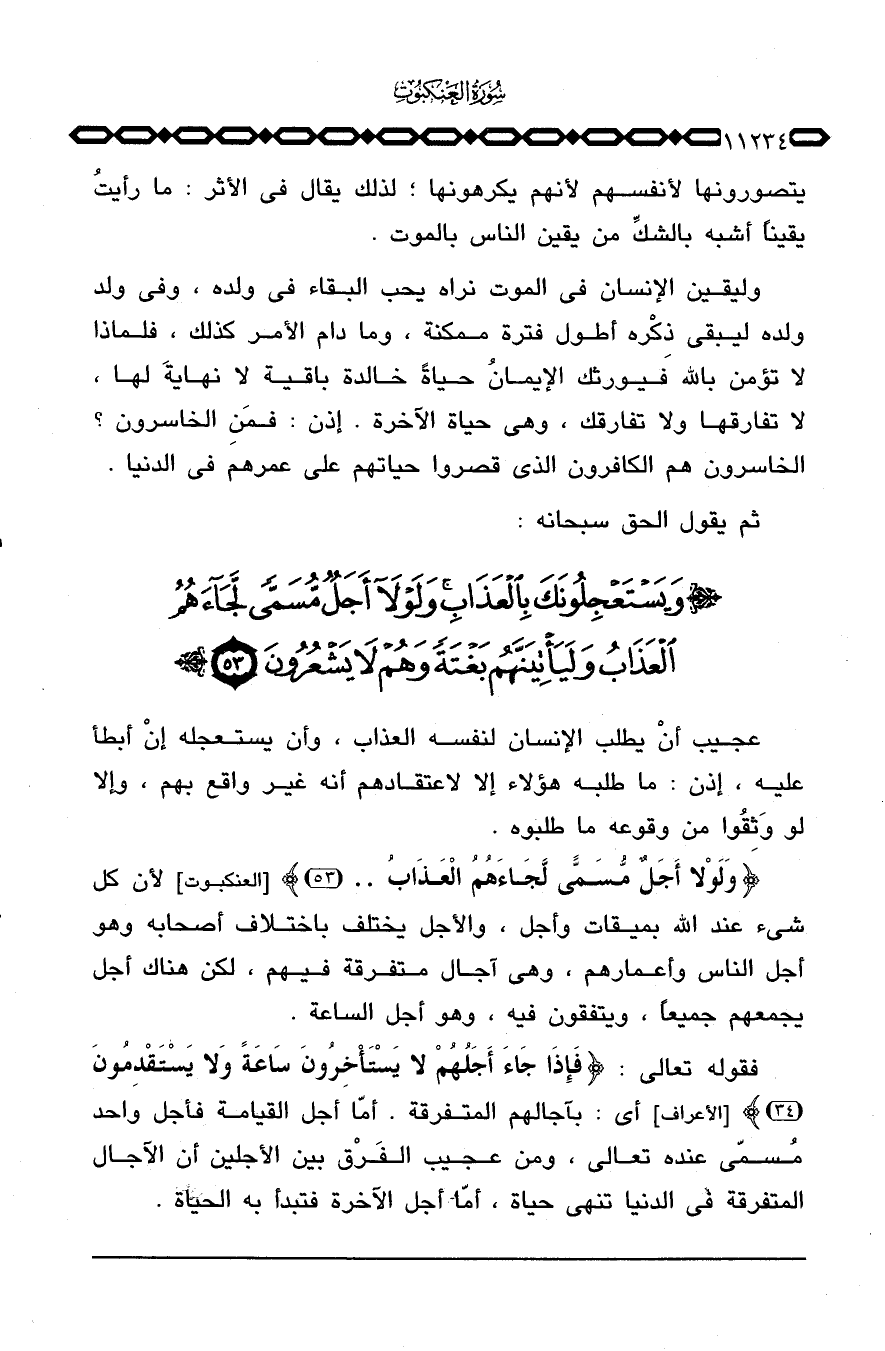 سُورَةُ العَنكَبُوتِ
١١٢٣٤
يتصورونها لأنفسهم لأنهم يكرهونها ؛ لذلك يقال فى الأثر : ما رأيتُ
يقيناً أشبه بالشكِّ من يقين الناس بالموت .
وليقين الإنسان فى الموت نراه يحب البقاء فى ولده ، وفى ولد
ولده ليبقى ذكْره أطول فترة ممكنة ، وما دام الأمر كذلك ، فلماذا
لا تؤمن بالله فيورثك الإيمانُ حياةً خالدة باقية لا نهايةَ لها ،
لا تفارقها ولا تفارقك ، وهى حياة الآخرة . إذن : فمَنِ الخاسرون ؟
الخاسرون هم الكافرون الذى قصروا حياتهم على عمرهم فى الدنيا .
ثم يقول الحق سبحانه :
وَيَسْتَعْجِلُونَكَ بِالْعَذَابِ ۚ وَلَوْلَآ أَجَلٌ مُّسَمًّى لَّجَآءَهُمُ
ٱلْعَذَابُ وَلَيَأْتِيَنَّهُم بَغْتَةً وَهُمْ لَا يَشْعُرُونَ ٥٣
عجيب أنْ يطلب الإنسان لنفسه العذاب ، وأن يستعجله إنْ أبطأ
عليه ، إذن : ما طلبه هؤلاء إلا لاعتقادهم أنه غير واقع بهم ، وإلا
لو وَثِقُوا من وقوعه ما طلبوه .
﴿ وَلَوْلا أَجَلٌ مُّسَمًّى لَّجَاءَهُمُ الْعَذَابُ .. (٥٣) ﴾ [العنكبوت] لأن كل
شىء عند الله بميقات وأجل ، والأجل يختلف باختلاف أصحابه وهو
أجل الناس وأعمارهم ، وهى آجال متفرقة فيهم ، لكن هناك أجل
يجمعهم جميعاً ، ويتفقون فيه ، وهو أجل الساعة .
فقوله تعالى : ﴿ فَإِذَا جَاءَ أَجَلُهُمْ لا يَسْتَأْخِرُونَ سَاعَةً وَلا يَسْتَقْدِمُونَ
(٣٤) ﴾ [الأعراف] أى : بآجالهم المتفرقة . أمّا أجل القيامة فأجل واحد
مُسمّى عنده تعالى ، ومن عجيب الفَرْق بين الأجلين أن الآجال
المتفرقة فى الدنيا تنهى حياة ، أمّا أجل الآخرة فتبدأ به الحياة .